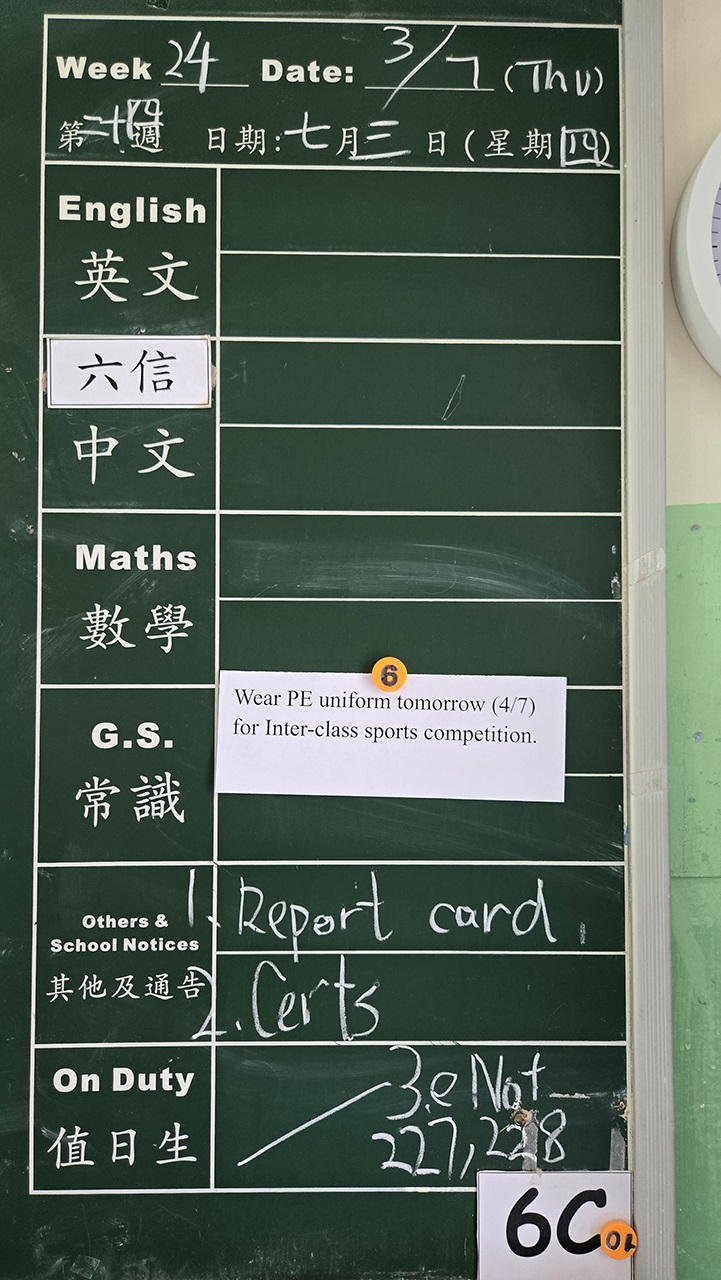 Week 24 Date: 3/7 (Thu)
第二十四週 日期:七月三日(星期四)
English
英文
六信
中文
Maths
數學
6
Wear PE uniform tomorrow (4/7)
for Inter-class sports competition.
G.S.
常識
Others &
School Notices
其他及通告
1. Report card
2. Certs
On Duty
值日生
3. e Not
227, 228
6C
10